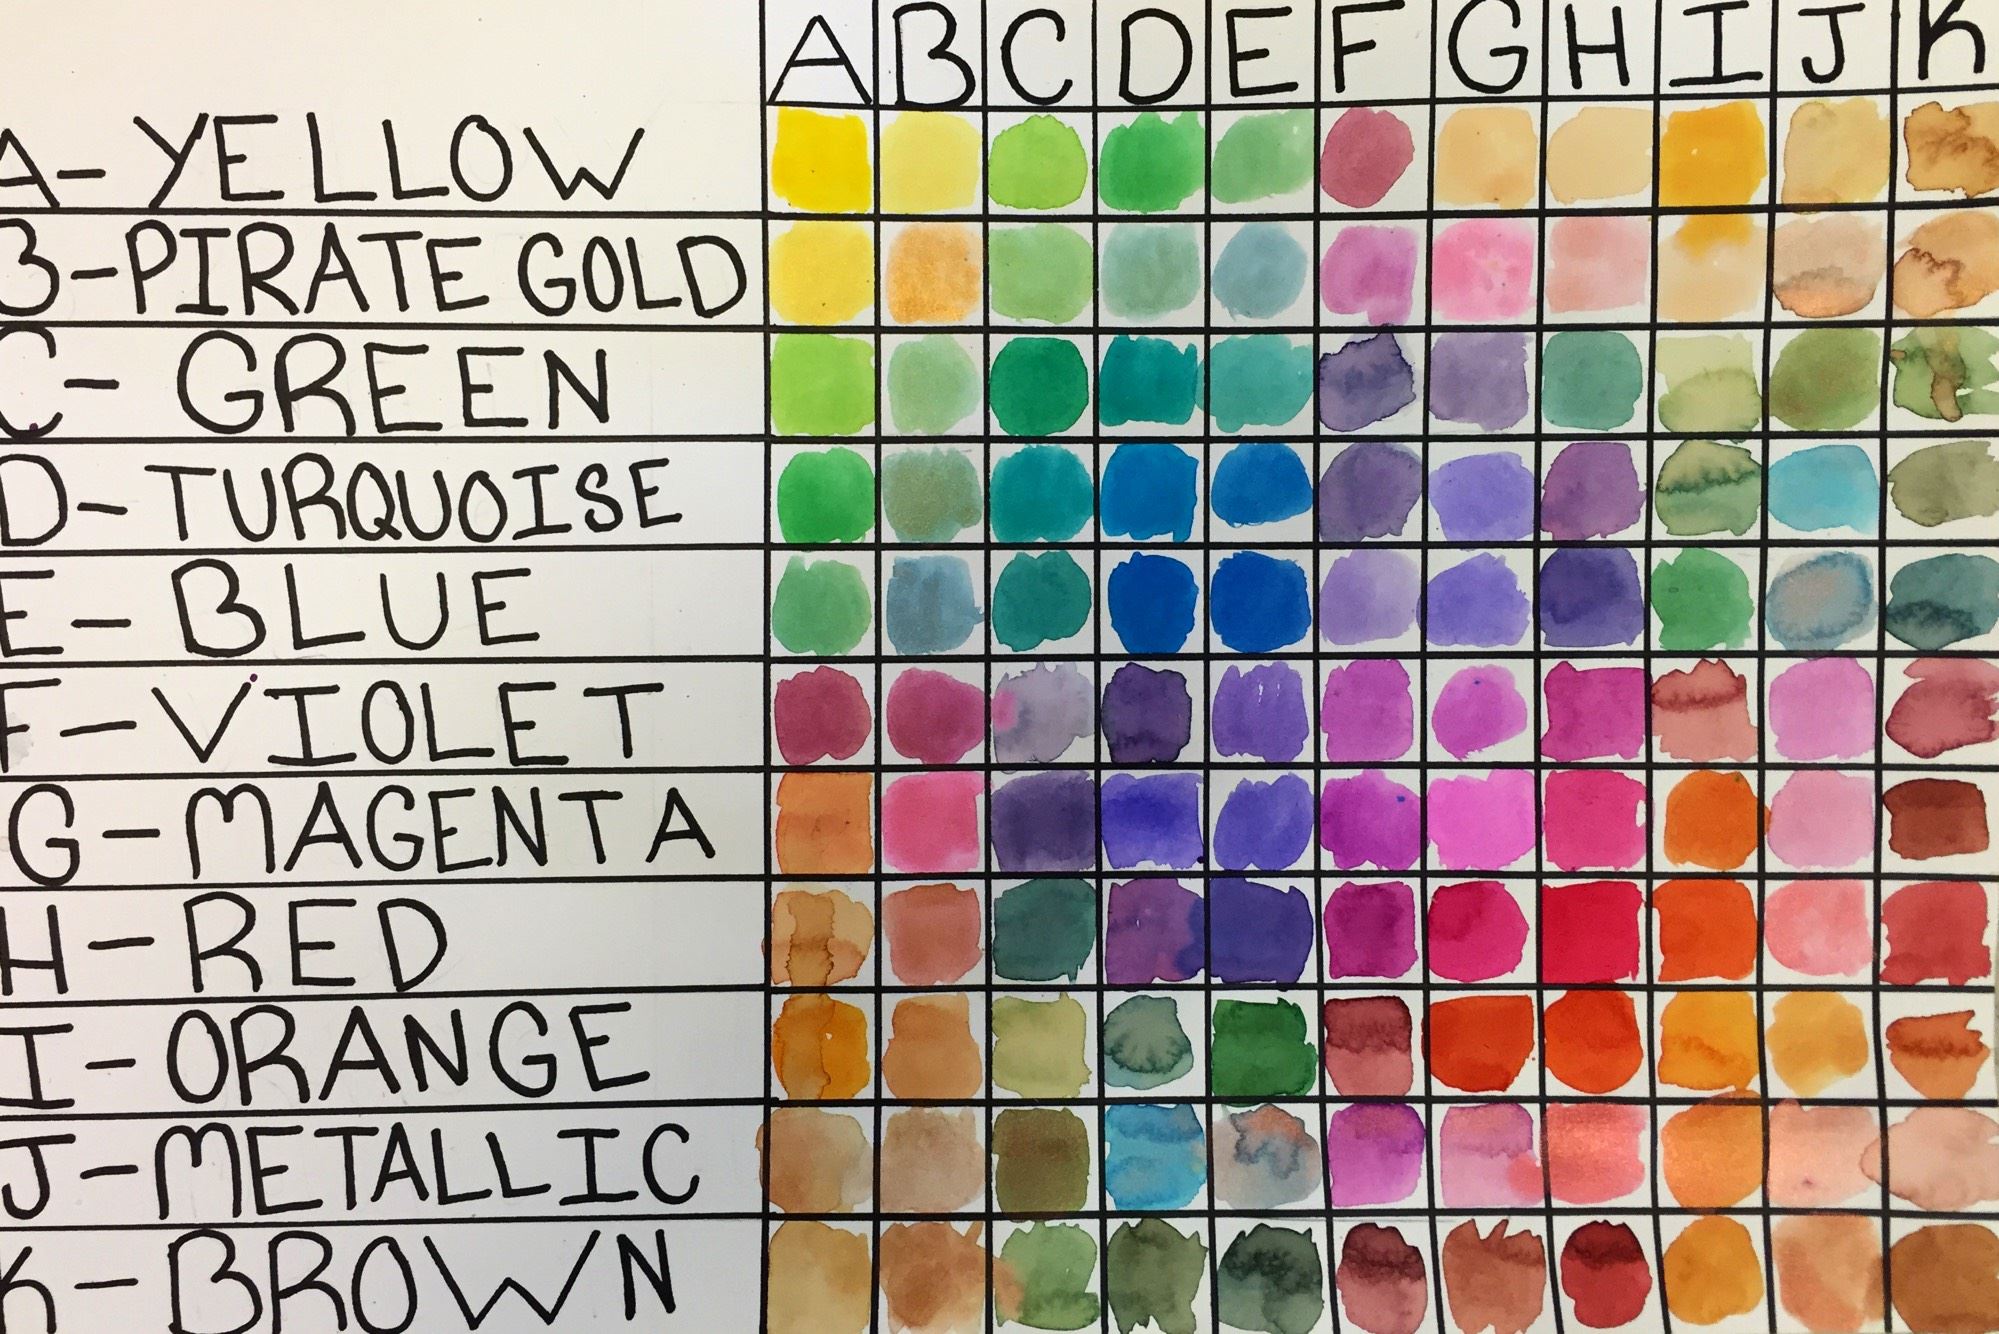 A B C D E F G H I J K
A- YELLOW
B-PIRATE GOLD
C- GREEN
D- TURQUOISE
E- BLUE
F- VIOLET
G- MAGENTA
H- RED
I- ORANGE
J- METALLIC
K- BROWN